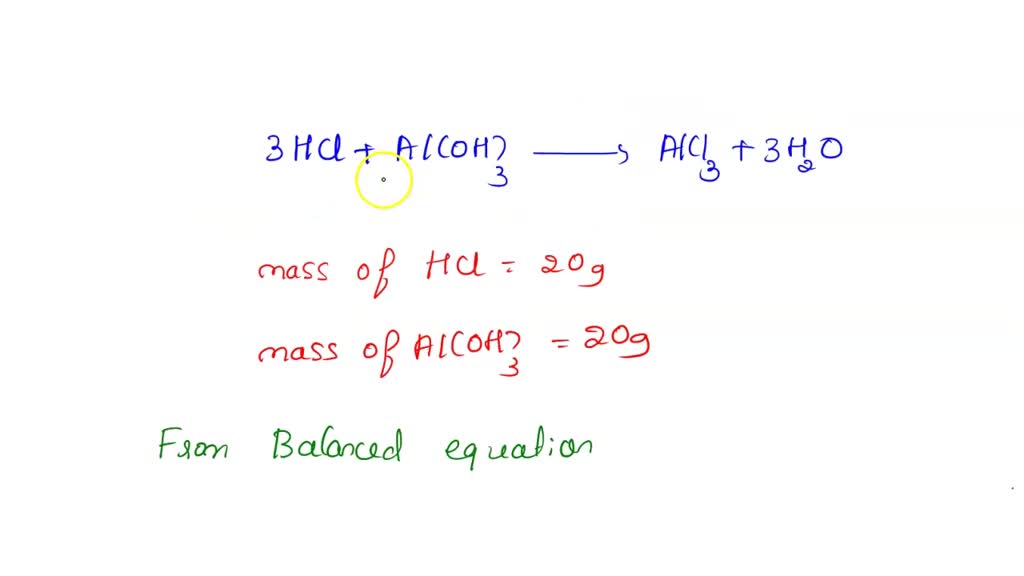 3HCl + Al(OH)3 → AlCl3 + 3H2O
mass of HCl = 20g
mass of Al(OH)3 = 20g
From Balanced equation